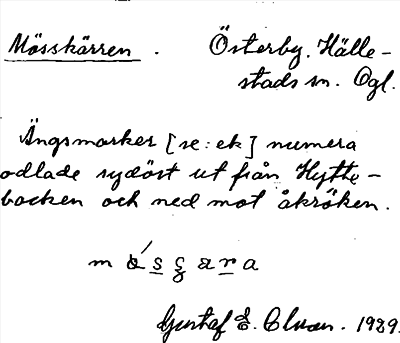 Mösskärren. Österby. Hälle-
stads sn. Ögl.
Ängsmarker [se: ek] numera
odlade sydöst ut från Hytte-
backen och ned mot åkröken.
Gustaf E.
1929.